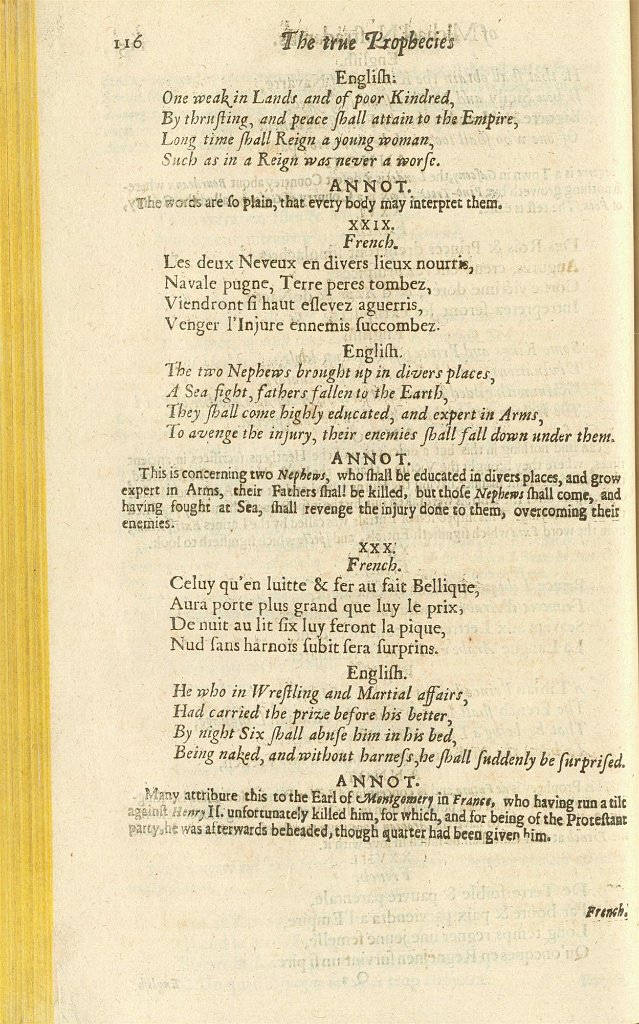 116 The true Prophecies
English.
One weak in Lands and of poor Kindred,
By thrusting, and peace shall attain to the Empire,
Long time shall Reign a young woman,
Such as in a Reign was never a worse.
ANNOT.
The words are so plain, that every body may interpret them.
XXIX.
French.
Les deux Neveux en divers lieux nourris,
Navale pugne, Terre peres tombez,
Viendront si haut eslevez aguerris,
Venger l'Injure ennemis succombez.
English.
The two Nephews brought up in divers places,
A Sea fight, fathers fallen to the Earth,
They shall come highly educated, and expert in Arms,
To avenge the injury, their enemies shall fall down under them.
ANNOT.
This is concerning two Nephews, who shall be educated in divers places, and grow
expert in Arms, their Fathers shall be killed, but those Nephews shall come, and
having fought at Sea, shall revenge the injury done to them, overcoming their
enemies.
XXX.
French.
Celuy qu'en luitte & fer au fait Bellique,
Aura porte plus grand que luy le prix,
De nuit au lit six luy feront la pique,
Nud sans harnois subit sera surprins.
English.
He who in Wrestling and Martial affairs,
Had carried the prize before his better,
By night Six shall abuse him in his bed,
Being naked, and without harness, he shall suddenly be surprised.
ANNOT.
Many attribute this to the Earl of Montgomery in France, who having run a tilt
against Henry II. unfortunately killed him, for which, and for being of the Protestant
party, he was afterwards beheaded, though quarter had been given him.
French.